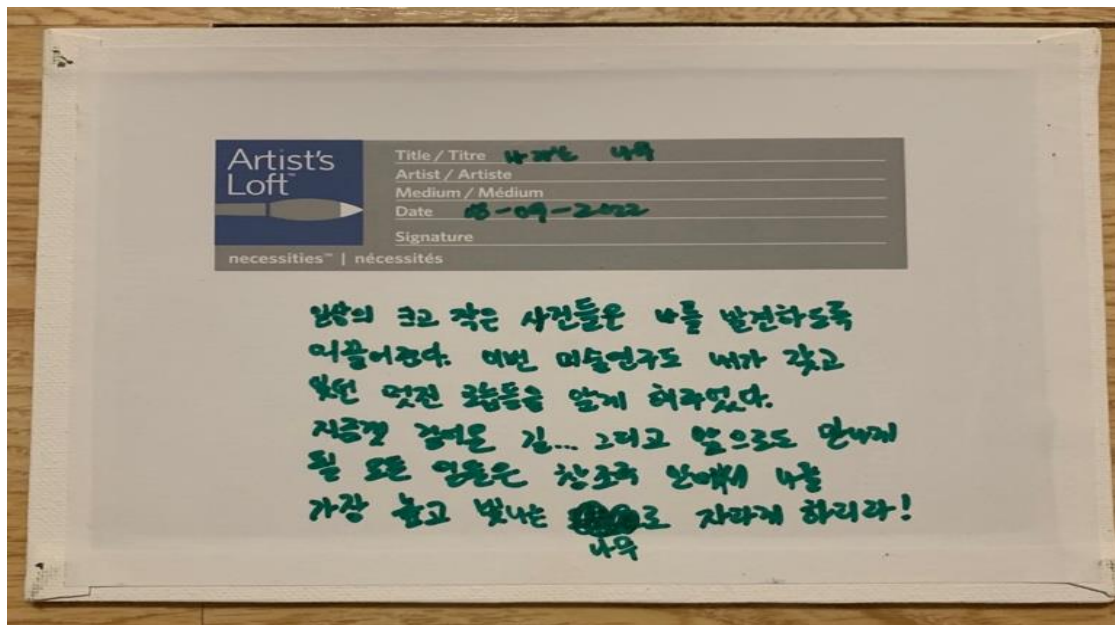 Artist's
Loft™
Title / Titre 나 자라는 나무
Artist / Artiste
Medium / Médium
Date 08-09-2022
Signature
necessities™ | nécessités
일상의 크고 작은 사건들은 나를 발견하도록
이끌어준다. 이번 미술연구도 내가 갖고
있던 멋진 모습들을 알게 해주었다.
지금껏 걸어온 길... 그리고 앞으로도 만나게
될 모든 일들은 창조주 안에서 나를
가장 높고 빛나는 로 자라게 하리라!
나무